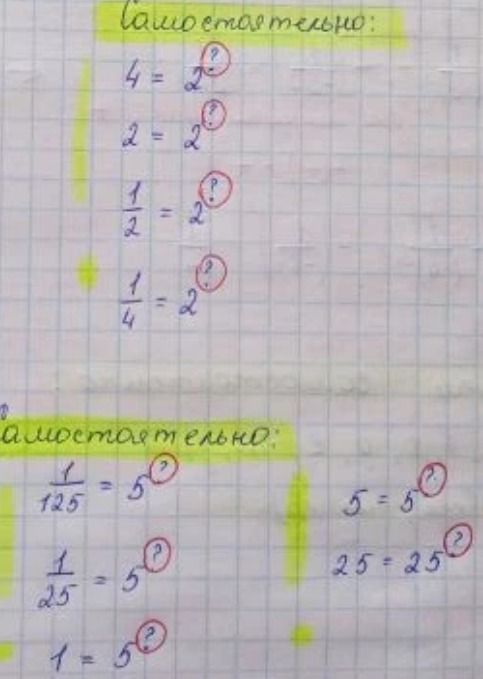 Самостоятельно:
4 = 2^?
2 = 2^?
1/2 = 2^?
1/4 = 2^?
амостоятельно:
1/125 = 5^?
1/25 = 5^?
1 = 5^?
5 = 5^?
25 = 25^?